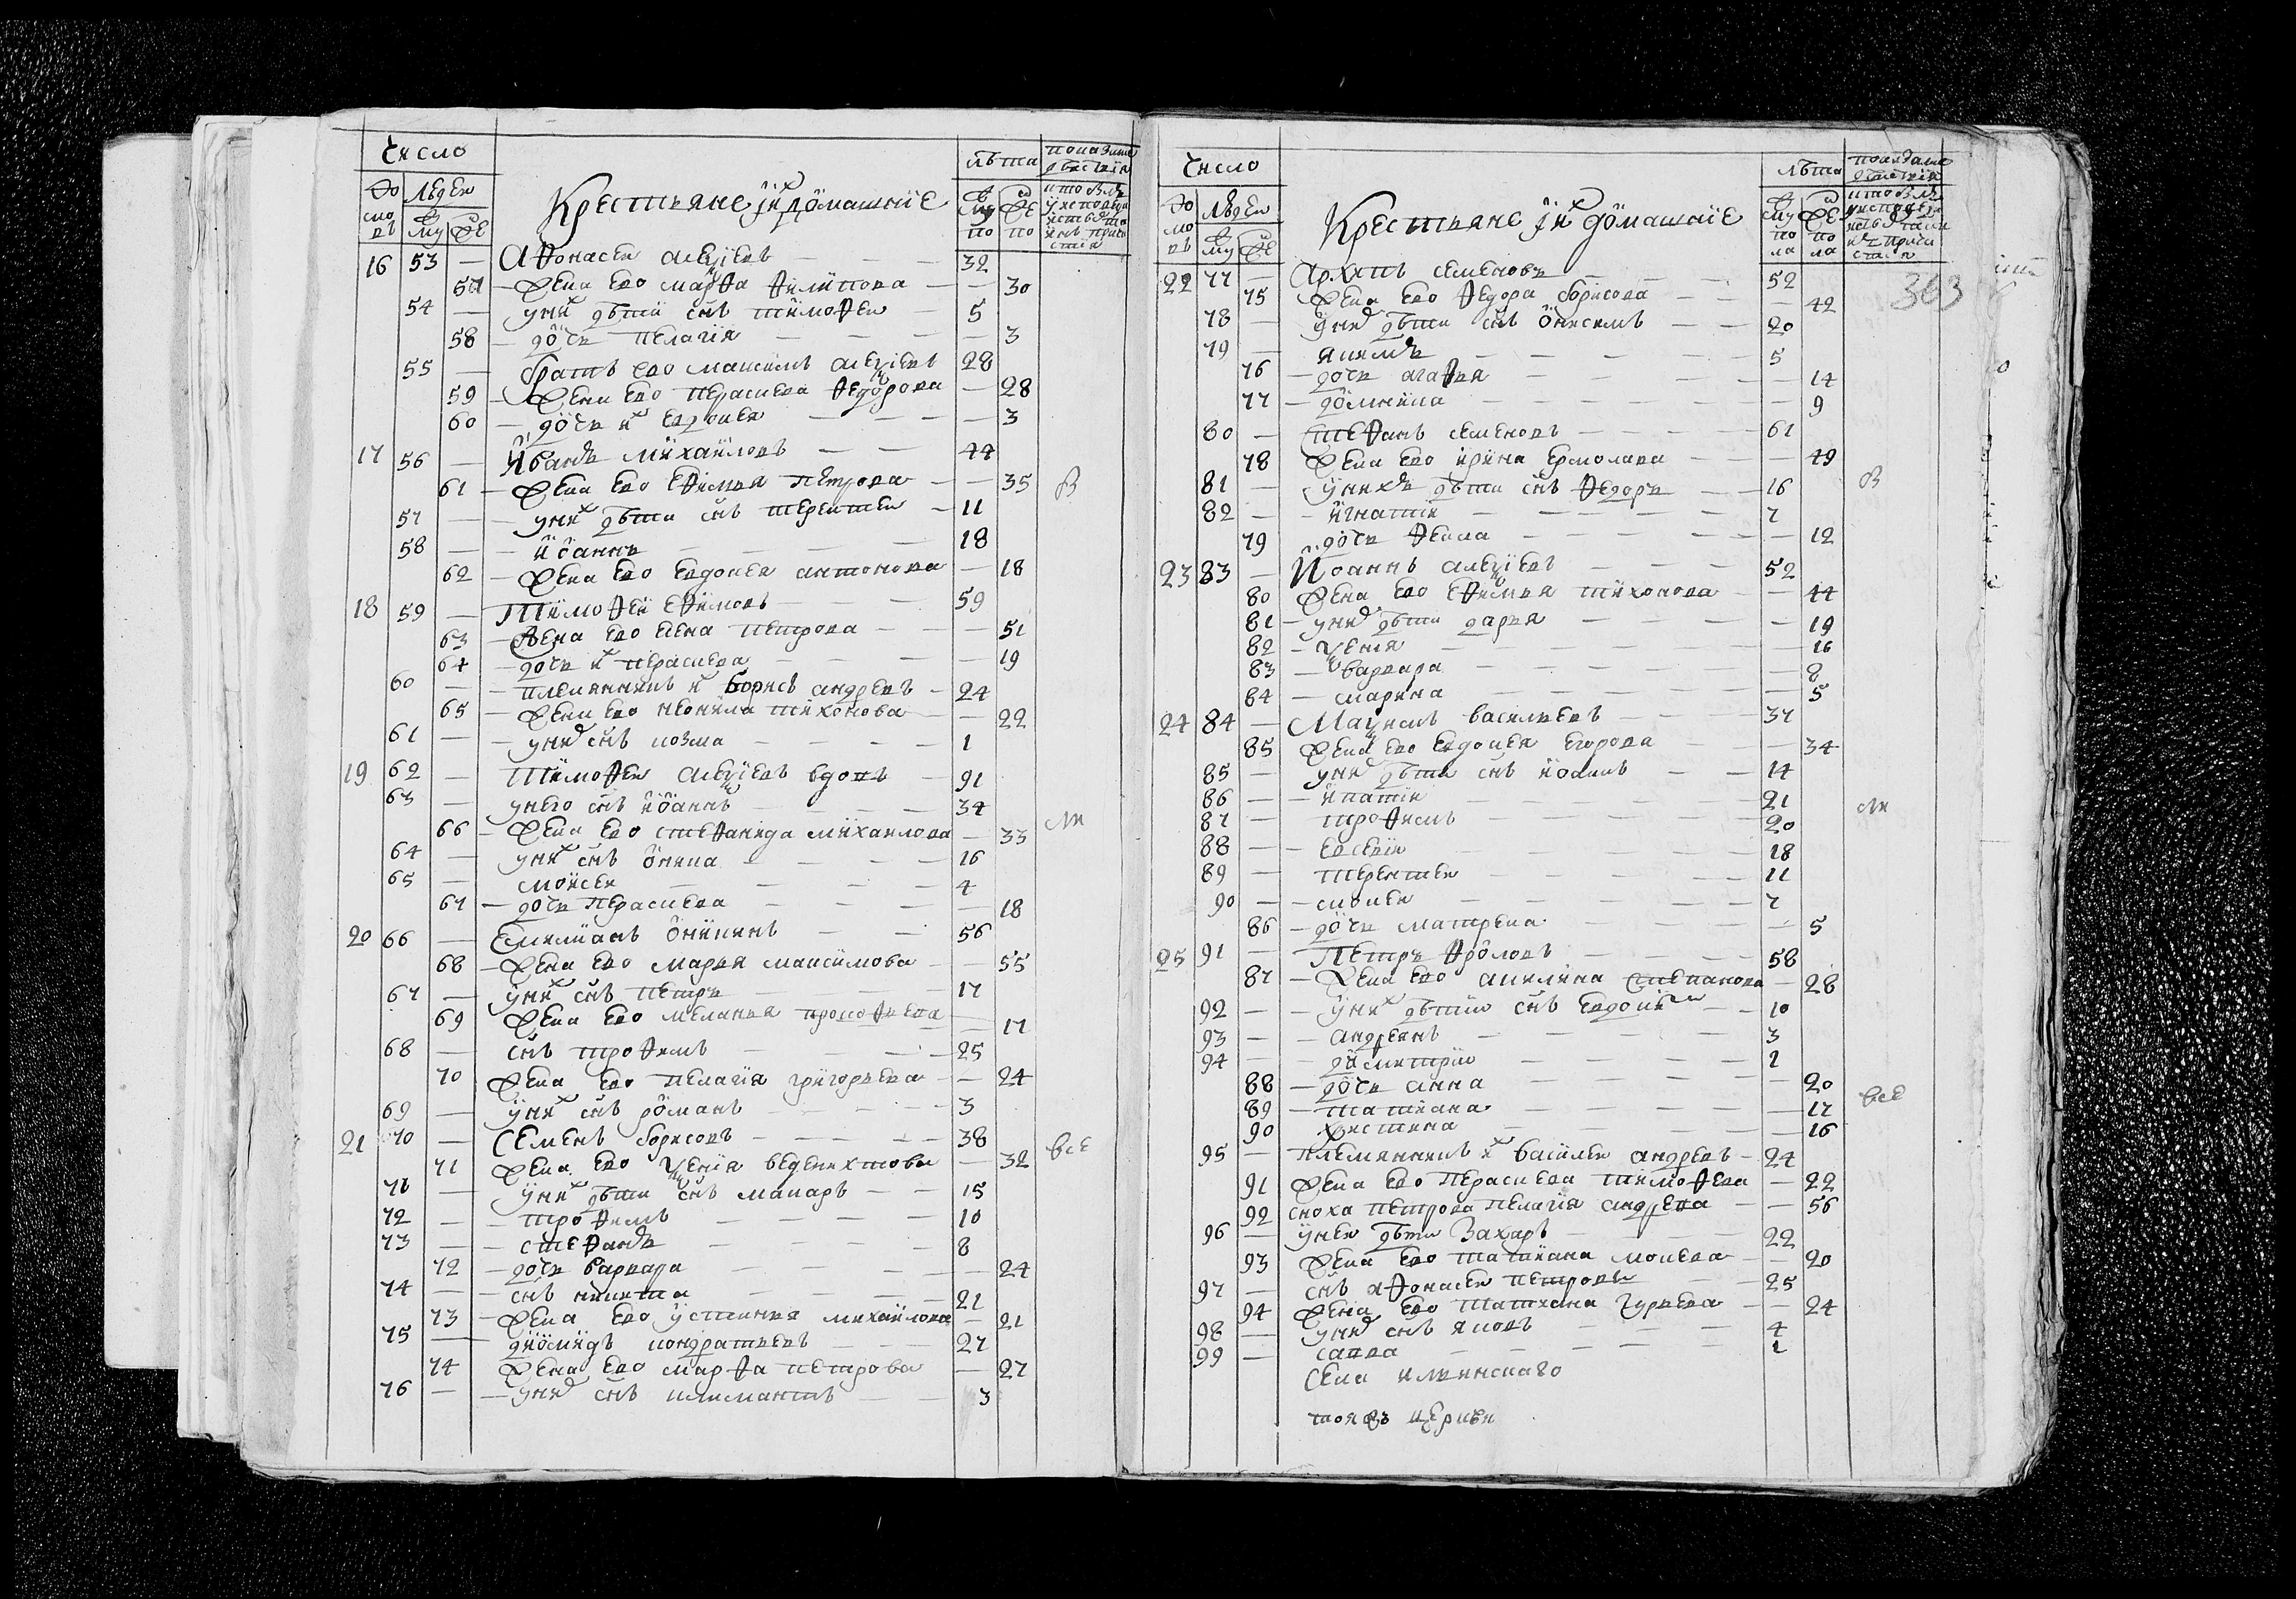 Число
лѣта
показание
дѣйствия
До
мо
въ
Людеи
Му
Же
Крестьяне и их домашние
Му
по
Же
по
16 53 — Афонасеи алеѯіевъ — — — 32
57 — Жена ево марфа филипова — — 30
54 — у них дѣти снъ тимофеи — 5
58 — дочь пелагія — — — — 3
55 — братъ ево максимъ алеѯіевъ 28
59 — Жена ево перасковя федорова — 28
60 — дочь их евдокея — — — 3
17 56 — Иванъ михаиловъ — — 44
61 — Жена ево ефимья петрова — — 35
В
57 — — у них дѣти снъ терентеи — 11
58 — — иоаннъ — — — — 18
62 — Жена ево евдокея антонова — 18
18 59 — Тимофеи ефимовъ — — 59
63 — Жена ево елена петрова — — — 51
64 — дочь их перасковя — — — — 19
60 — — племянникъ их борисъ андреевъ — 24
65 — Жена ево неонила тихонова — — 22
61 — — у них снъ козма — — — — 1
19 62 — Тимофеи алеѯіевъ вдовъ — 91
63 — у него снъ иоаннъ — — — — 34
66 — Жена ево стефанида михаилова — 33
ли
64 — у них снъ оника — — — — 16
65 — моисеи — — — — 4
67 — дочь перасковя — — — — 18
20 66 — Емилианъ оникинъ — — 56
68 — Жена ево марья максимова — — 55
67 — у них снъ петръ — — — — 17
69 Жена ево меланья прокофьева — 17
68 — снъ трофимъ — — — — 25
70 Жена ево пелагія григорьева — — 24
69 — у них снъ романъ — — — 3
21 70 — Семенъ борисовъ — — — — 38
все
71 Жена ево ѯенія веденихтова — 32
71 — у них дѣти снъ макаръ — — 15
72 — — трофимъ — — — — 10
73 — — стефанъ — — — — 8
72 — дочь варвара — — — — 24
74 — — снъ никита — — — — 21
73 — Жена ево устинья михаилова — 21
75 — диомидъ кондратьевъ — — — 27
74 Жена ево марфа петрова — 27
76 — — у них снъ климантъ — — 3
Число
лѣта
показание
дѣйствия
До
мо
въ
Людеи
Му
Же
Крестьяне и их домашние
Му
по
ла
Же
по
ла
363
22 77 — Архипъ семеновъ — — 52
75 Жена ево федора борисова — — 42
78 — у них дѣти снъ онисимъ — — 20
79 — якимъ — — — — 5
76 — дочь агафья — — — — 14
77 — домника — — — — 9
80 — Стефанъ семеновъ — — — — 61
78 Жена ево ирина ермолаева — — 49
81 — у нихъ дѣти снъ федоръ — — 16
В
82 — — игнатіи — — — — 7
79 дочь фекла — — — — 12
23 83 — Иоаннъ алеѯіевъ — — — 52
80 Жена ево ефимья тихонова — — 44
81 — у них дѣти дарья — — — — 19
82 — ѯенія — — — — 16
83 — варвара — — — — 8
84 — марина — — — — 5
24 84 — Маѯимъ васильевъ — — 37
85 Жена ево евдокея егорова — — 34
85 — у них дѣти снъ иоаннъ — — 14
86 — — ипатіи — — — — 21
ли
87 — трофимъ — — — — 20
88 — — евсевіи — — — — 18
89 — терентеи — — — — 11
90 — — сидоеи — — — — 7
86 — дочь матрена — — — — 5
25 91 — Петръ фроловъ — — — — 58
87 — Жена ево акилина степанова — 28
92 — — у них дѣти снъ евдоким — — 10
93 — — андреянъ — — — — 3
94 — димитріи — — — — 1
88 — дочь анна — — — — 20
89 — татіяна — — — — 17
все
90 христина — — — — 16
95 — племянникъ их василеи андреевъ — 24
91 Жена ево перасковя тимофеева — 22
92 сноха петрова пелагія андреева — — 56
96 — у неи дѣти Захаръ — — — 22
93 Жена ево татіяна мокеева — — 20
97 — снъ афонасеи петровъ — — 25
94 Жена ево татіяна гурьева — — 24
98 — у них снъ яковъ — — — — 4
99 — савва — — — — 1
Села ильинскаго
тояжъ церкви